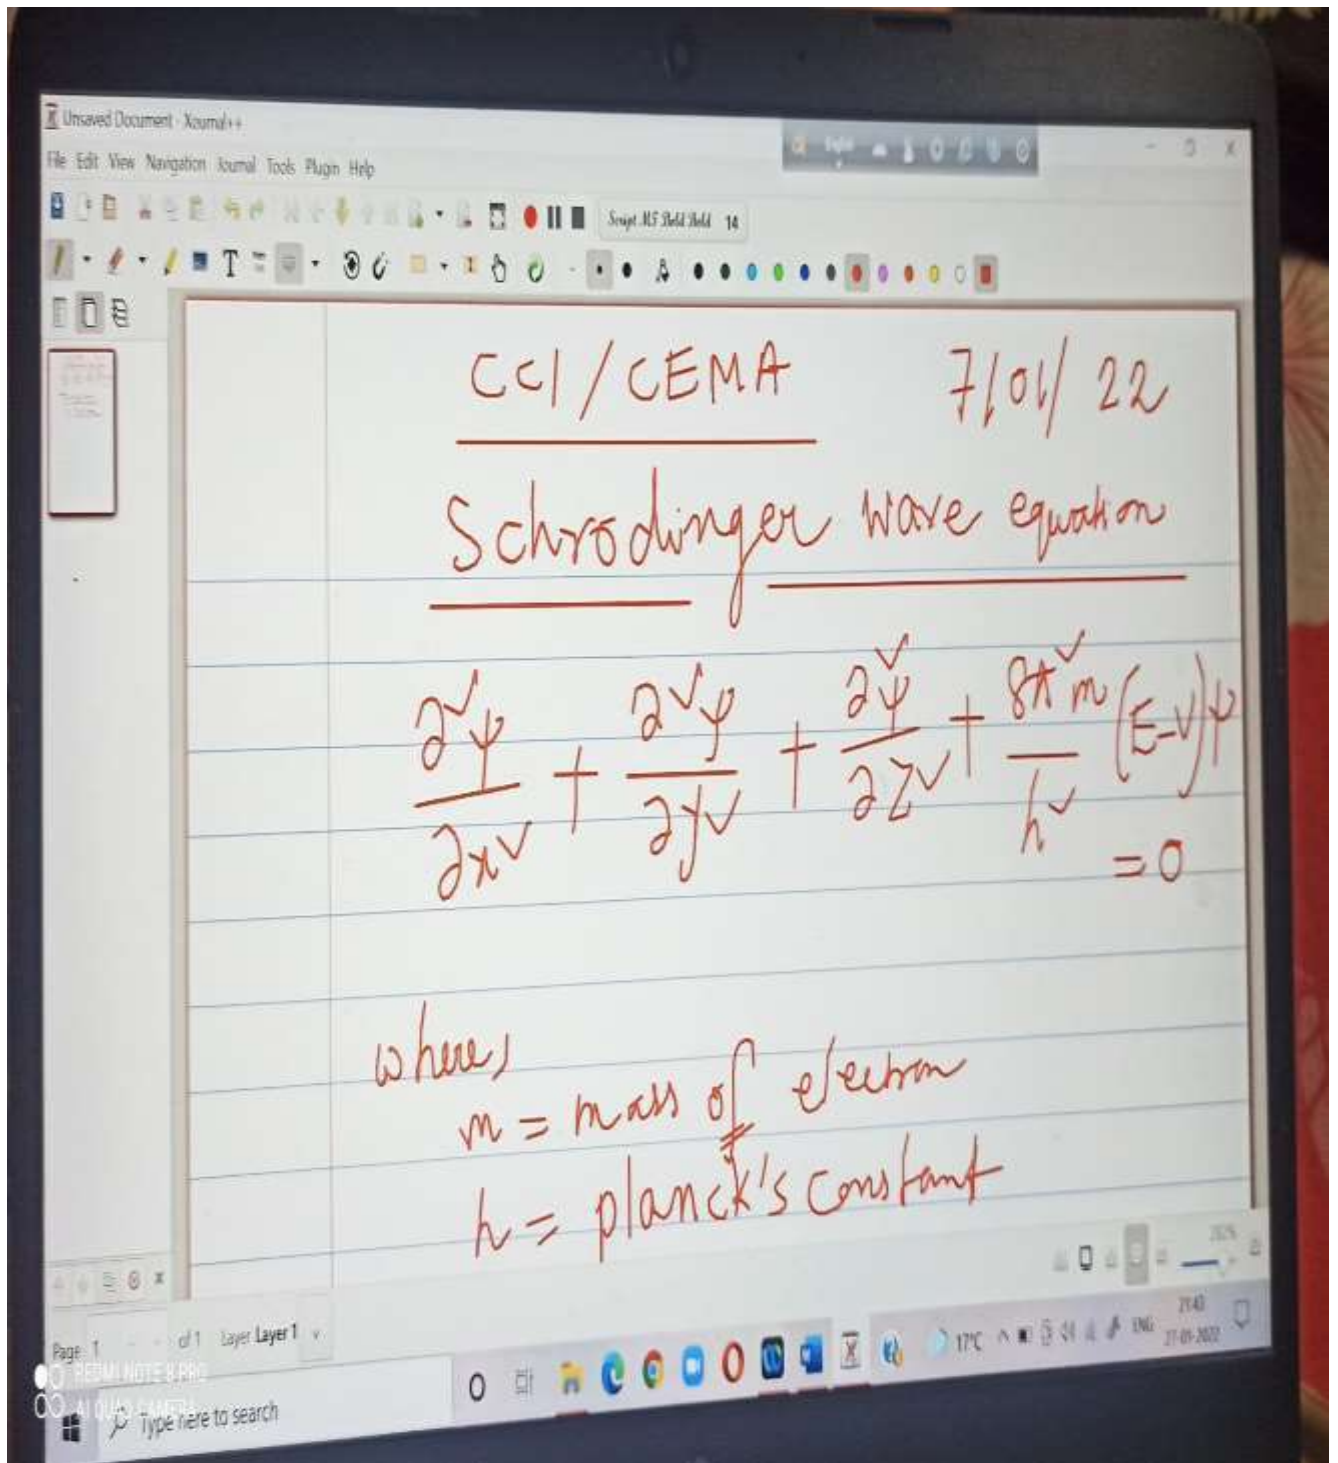 Unsaved Document - Xournal++
File Edit View Navigation Journal Tools Plugin Help
Script MT Bold Bold 14
CCI / CEMA 7/01/ 22
Schrodinger wave equation
∂²ψ/∂x² + ∂²ψ/∂y² + ∂²ψ/∂z² + 8π²m/h² (E-V)ψ
= 0
where,
m = mass of electron
h = planck's constant
Page 1 of 1 Layer Layer 1
17°C ENG 21:43
27-01-2022
REDMI NOTE 8 PRO
AI QUAD CAMERA
Type here to search